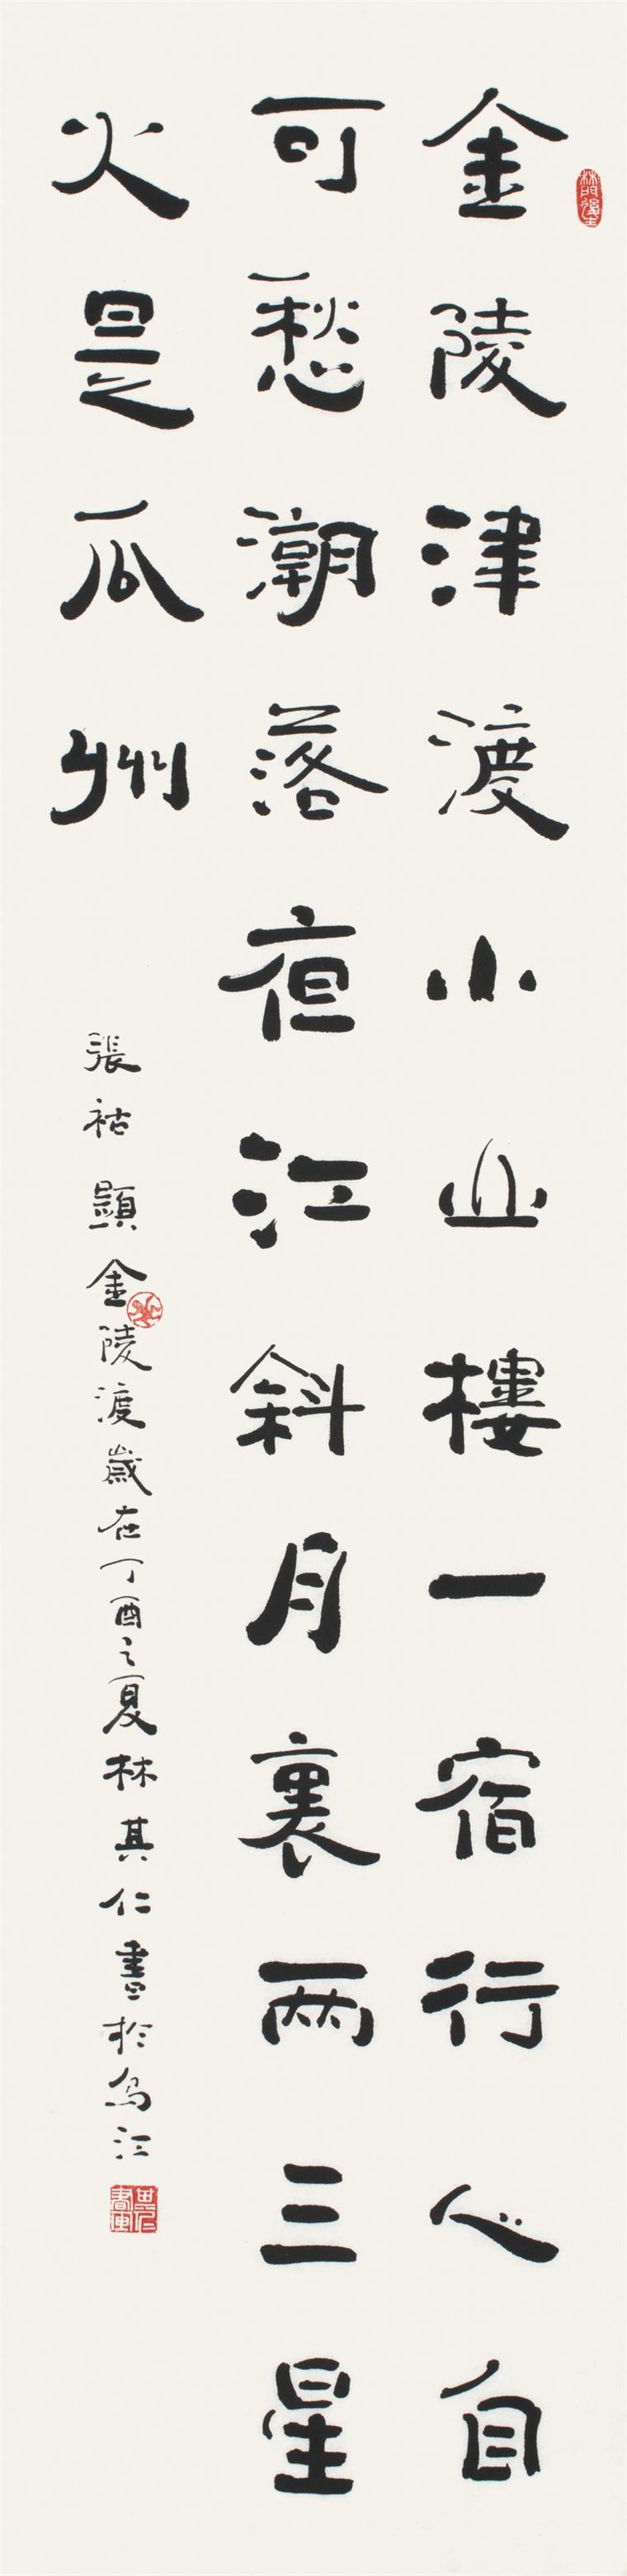 金陵津渡小山樓一宿行人自
可愁潮落夜江斜月裏两三星
火是瓜州
張祜題金陵渡歲在丁酉之夏林其仁書於烏江